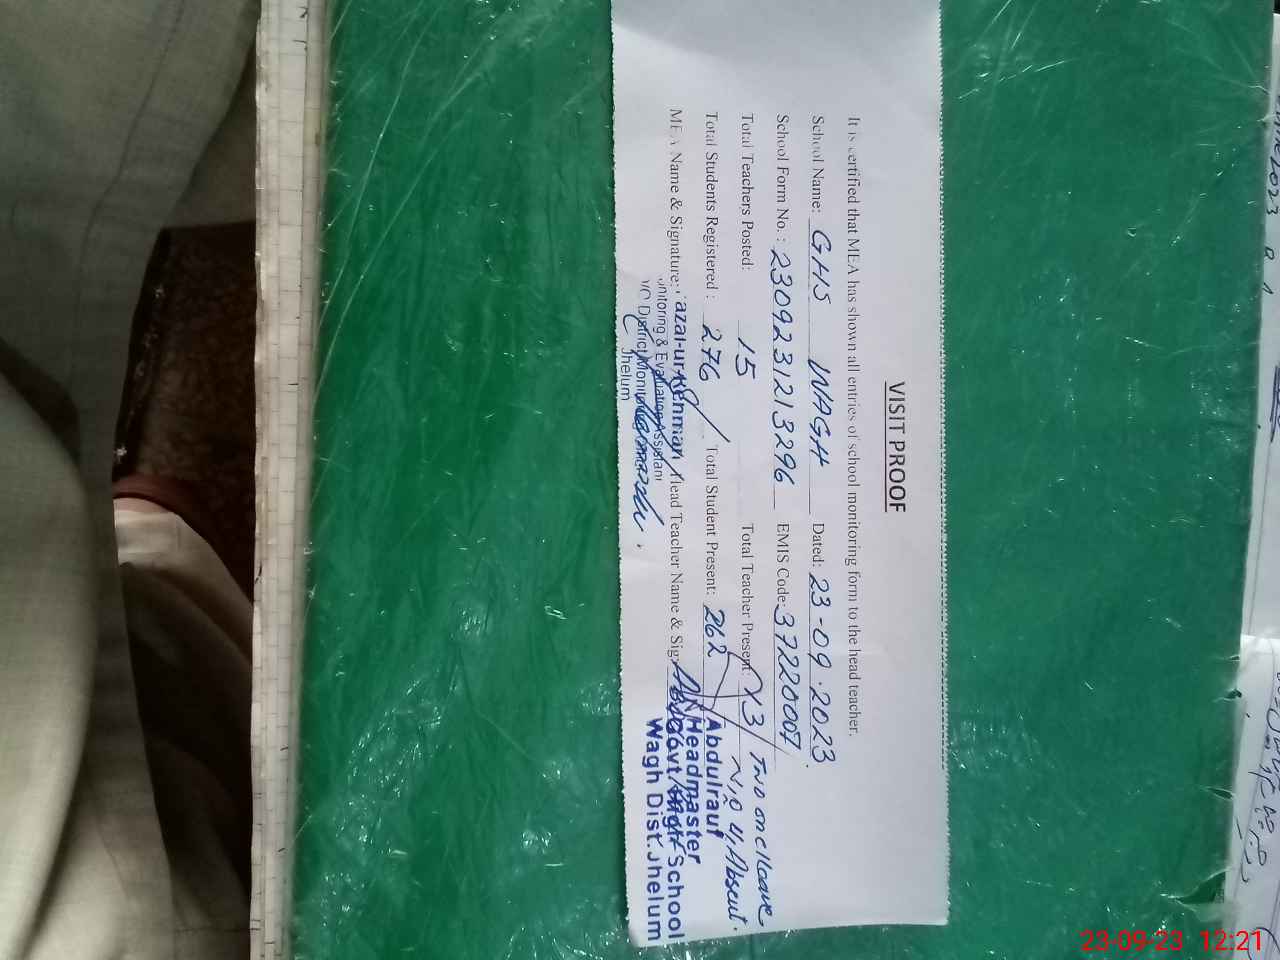 VISIT PROOF
It is certified that MEA has shown all entries of school monitoring form to the head teacher.
School Name: GHS WAGH Dated: 23-09-2023
School Form No.: 230923121 3296 EMIS Code: 37220007
Total Teachers Posted: 15 Total Teacher Present: 13 / Two on c/leave
Absent.
Total Students Registered: 276 / Total Student Present: 262
MEA Name & Signature: azal-ur-Rehman Head Teacher Name & Sig
onitoring & Evaluation Assistant
District Monitoring
Jhelum
Abdulrauf
Headmaster
Govt. High School
Wagh Dist. Jhelum
23-09-23 12:21